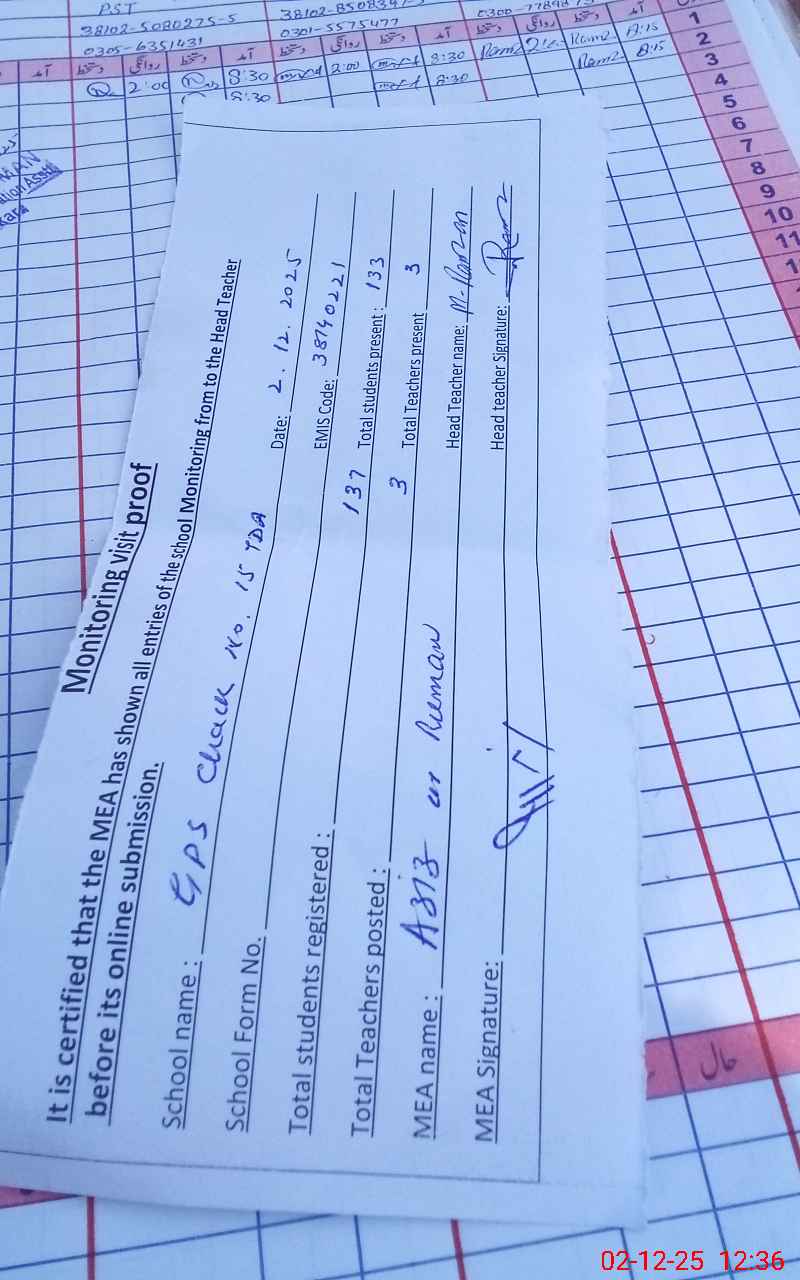 PST
38102-5080275-5
0305-6351431
0301-5575477
آمد دستخط روانگی دستخط آمد دستخط روانگی دستخط آمد
2:00 8:30 2:00 8:30 8:15
8:30 8:30 8:15
1
2
3
4
5
6
7
8
9
10
11
Monitoring visit proof
It is certified that the MEA has shown all entries of the school Monitoring from to the Head Teacher
before its online submission.
School name : GPS Chack No. 15 TDA
School Form No. Date: 2.12.2025
EMIS Code: 38140221
Total students registered : 137 Total students present : 133
Total Teachers posted : 3 Total Teachers present 3
MEA name : Aziz ur Rehman Head Teacher name: M. Ramzan
MEA Signature: Head teacher Signature:
حال
02-12-25 12:36